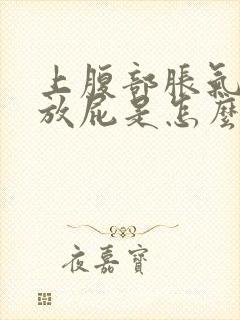 上腹部脹氣
放屁是怎麼
夜嘉寶